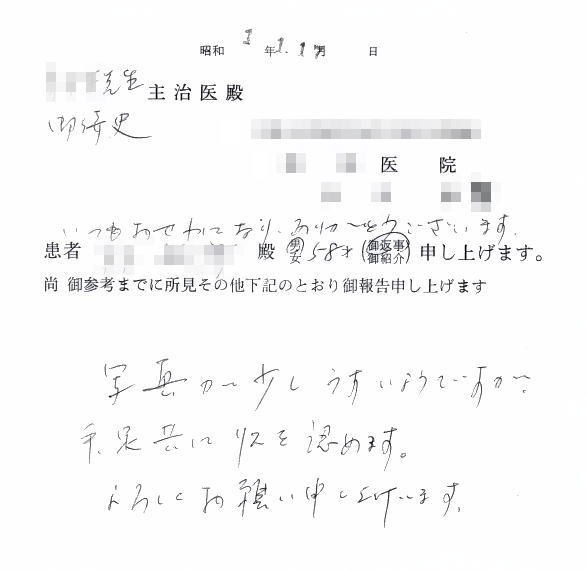 昭和 1年.11月 日
先生 主治医殿
御侍史
医院
いつもおせわになり、ありがとうございます。
患者 殿 男 女 58才 (御返事 御紹介) 申し上げます。
尚 御参考までに所見その他下記のとおり御報告申し上げます
写真が少しうすいようですが、
手、足共にリスを認めます。
よろしくお願い申し上げます。